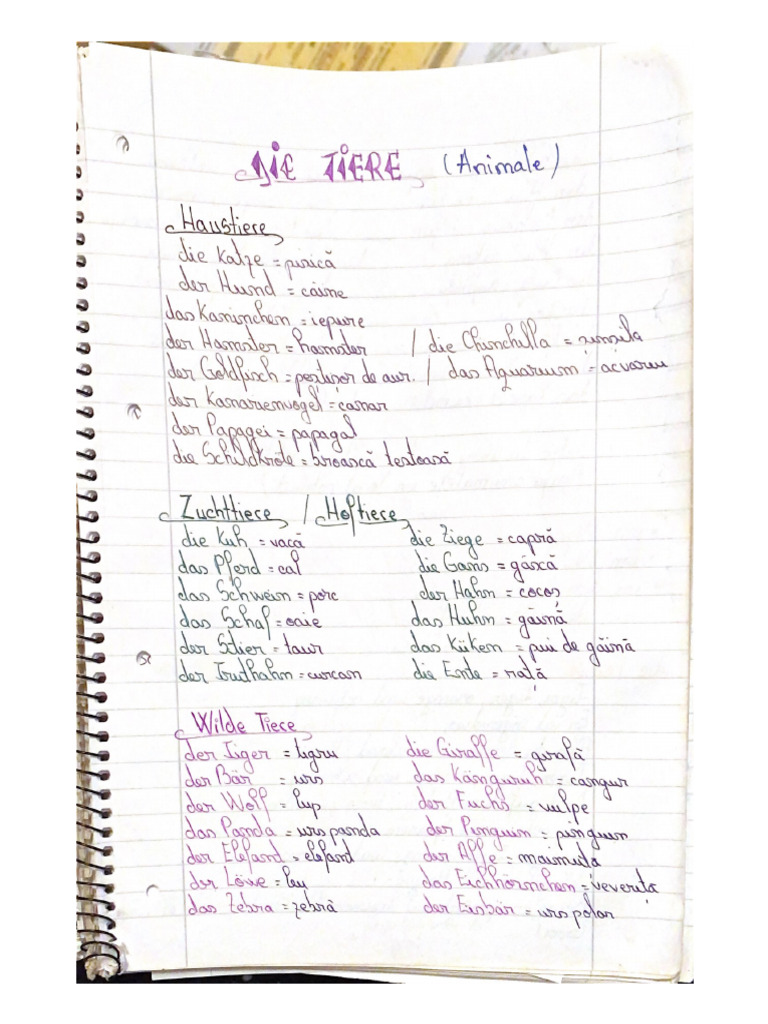 DIE TIERE (Animale)
Haustiere
die Katze = pisică
der Hund = câine
das Kaninchen = iepure
der Hamster = hamster / die Chinchilla = șinșila
der Goldfisch = peștișor de aur. / das Aquarium = acvariu
der Kanarienvogel = canar
der Papagei = papagal
die Schildkröte = broască țestoasă
Zuchttiere / Hoftiere
die Kuh = vacă die Ziege = capră
das Pferd = cal die Gans = gâscă
das Schwein = porc der Hahn = cocoș
das Schaf = oaie das Huhn = găină
der Stier = taur das Küken = pui de găină
der Truthahn = curcan die Ente = rață
Wilde Tiere
der Tiger = tigru die Giraffe = girafă
der Bär = urs das Känguruh = cangur
der Wolf = lup der Fuchs = vulpe
das Panda = urs panda der Pinguin = pinguin
der Elefand = elefand der Affe = maimuța
der Löwe = leu das Eichhörnchen = veverița
das Zebra = zebră der Eisbär = urs polar